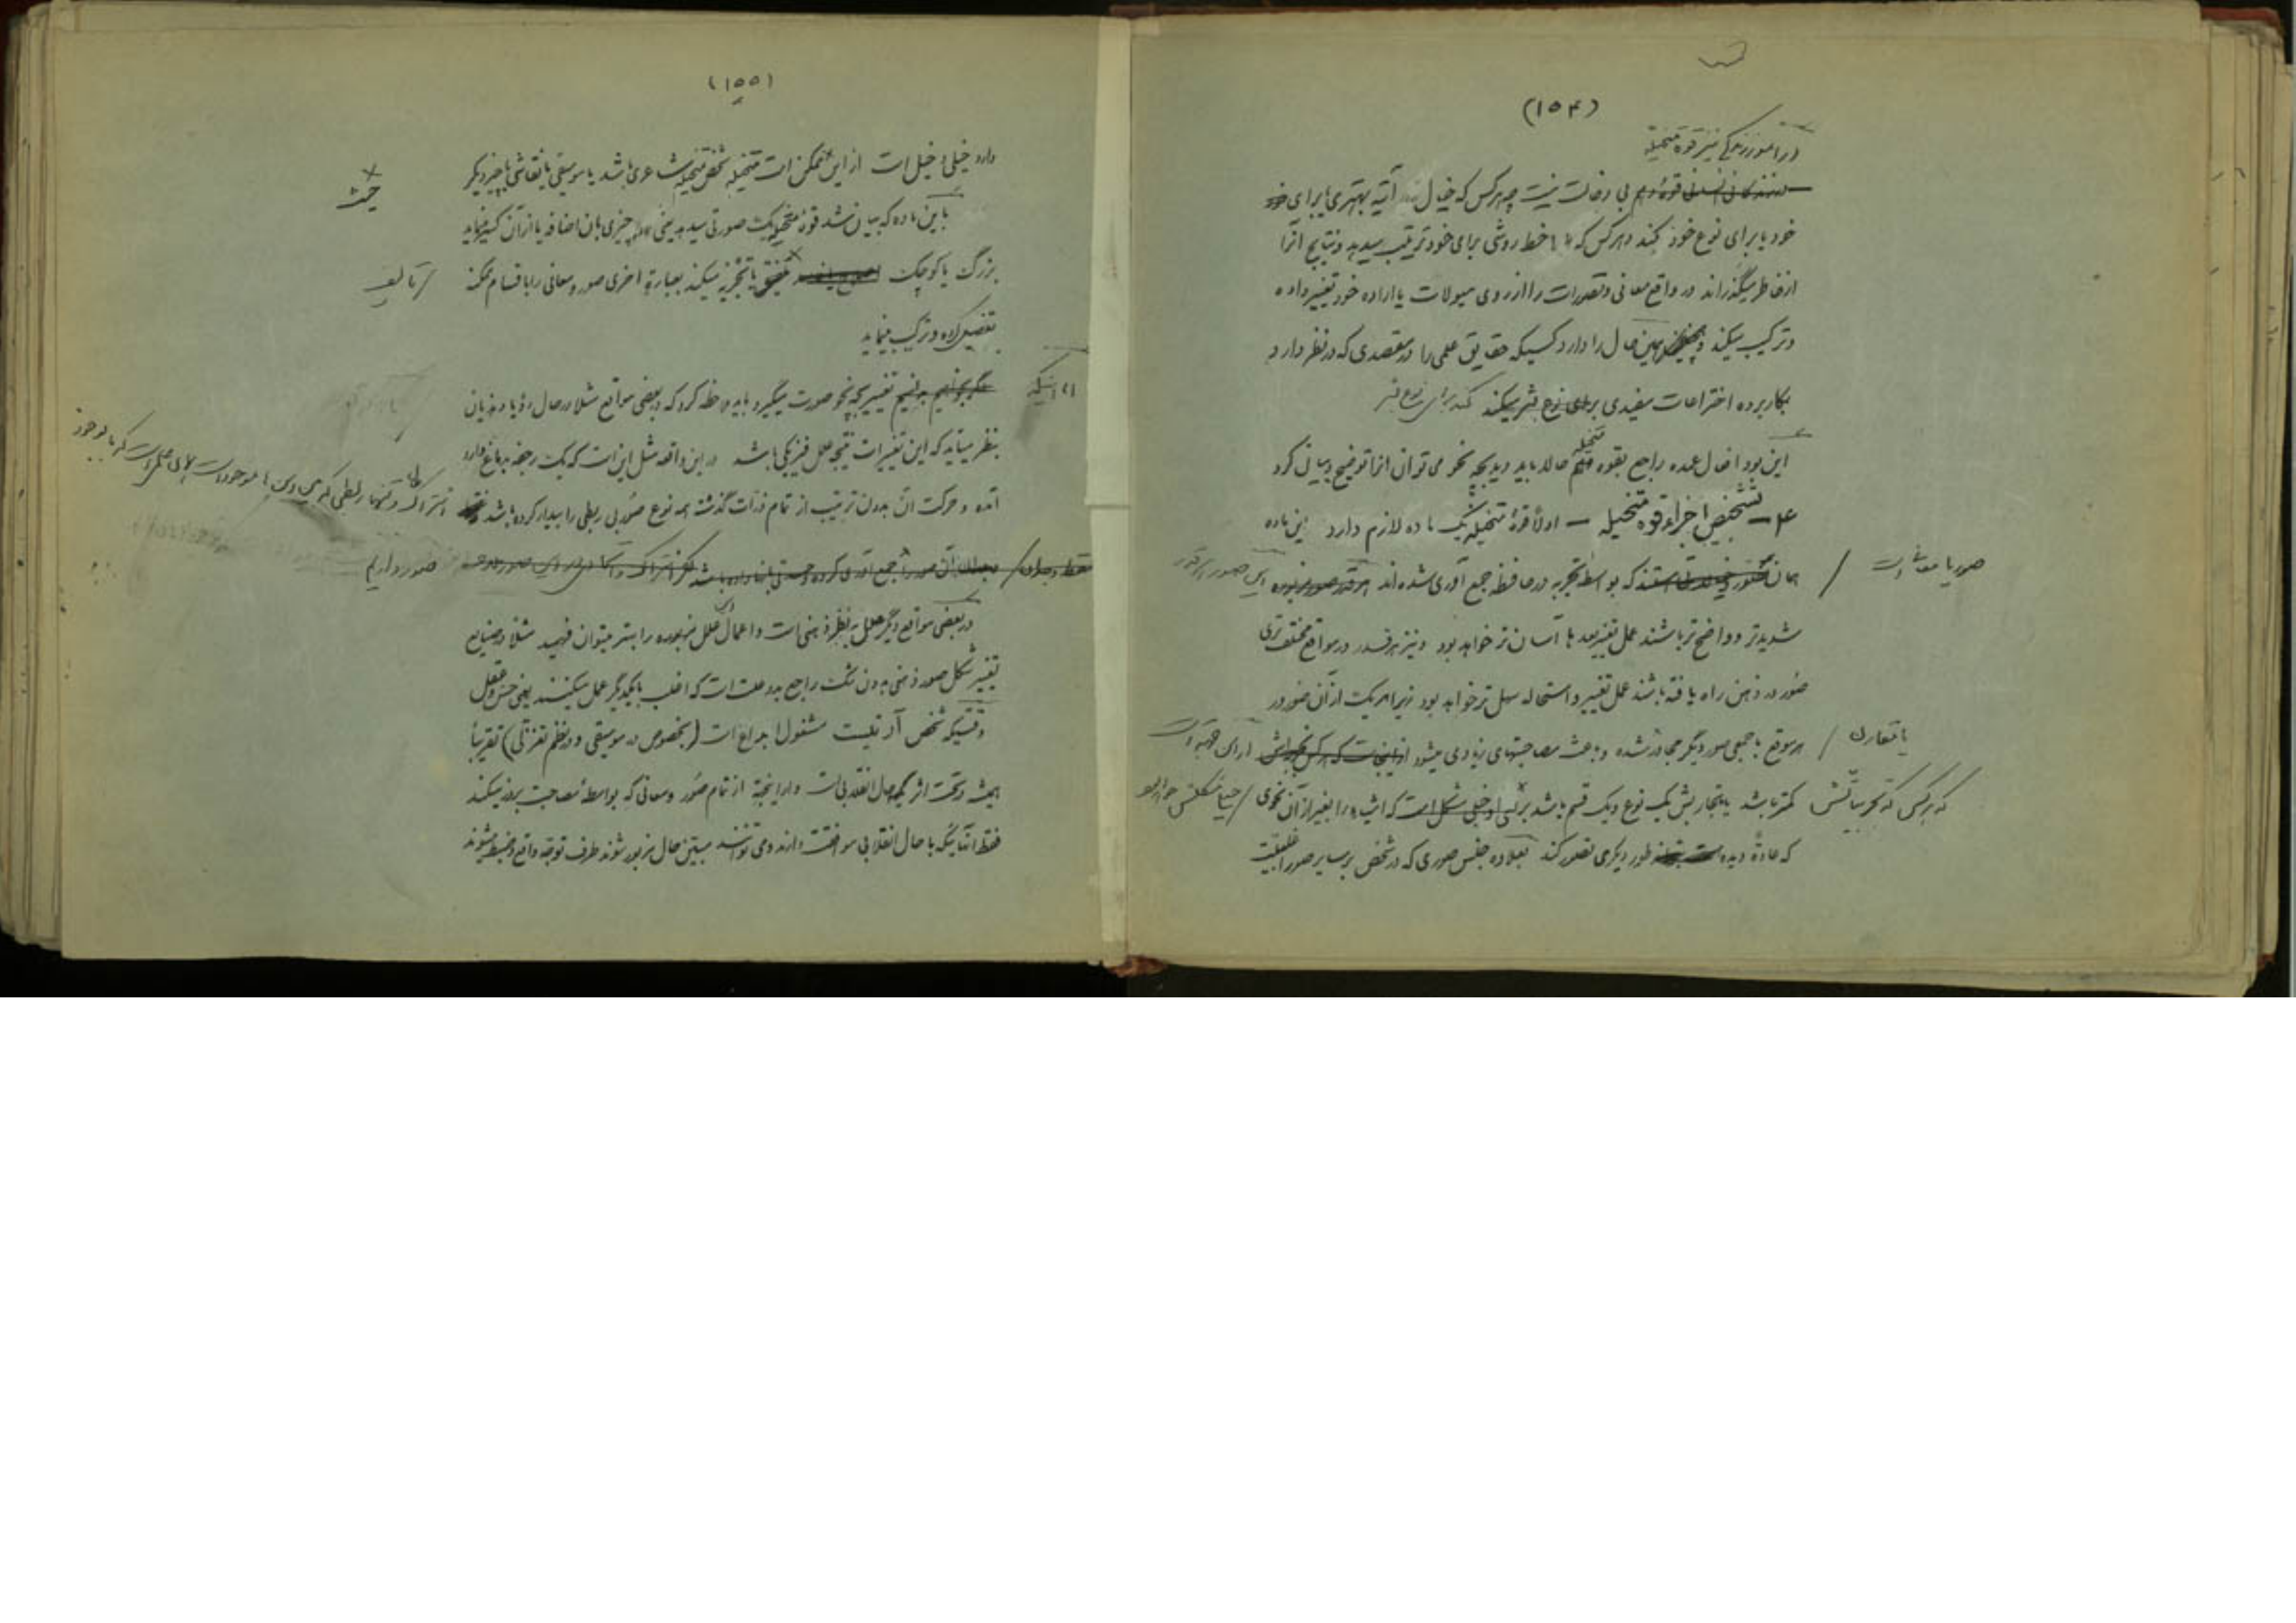 (۱۵۴)
در امور زندگی نیز قوه متخیله
بی دخالت نیست چه هر کس که خیال آتیه بهتری برای
خود یا برای نوع خود کند و هر کس که خط روشی برای خود ترتیب میدهد و نتایج آنرا
از خاطر میگذراند در واقع معانی و تصورات را از روی میولات یا اراده خود تغییر داده
و ترکیب میکند همین حال را دارد کسیکه حقایق علمی را در مقصدی که در نظر دارد
بکار برده اختراعات مفیدی برای نوع بشر میکند
این بود افعال عمده راجع بقوه متخیله حالا باید دید بچه نحو می توان آنرا توضیح و بیان کرد
تشخیص اجزاء قوه متخیله — اولاً قوهٔ متخیله یک ماده لازم دارد این ماده
همان صور یا معانی است که بواسطه تجربه در حافظه جمع آوری شده اند این صور هر قدر
شدیدتر و واضح تر باشند عمل تغییر آنها آسان تر خواهد بود و نیز هر قدر در مواقع مختلف تری
صور در ذهن راه یافته باشند عمل تغییر و استحاله سهل تر خواهد بود زیرا هر یک از آن صور در
هر موقع با جمعی صور دیگر مجاور شده و باعث مصاحبتهای زیادی میشود
یا تقارن
که هر کس که تجربیاتش کمتر باشد یا تجاربش یک نوع و یک قسم باشد برای او خیلی مشکل است که اشیاء را بغیر از آن نحوی
که عادةً دیده طور دیگری تصور کند بعلاوه جنس صوری که در شخص بر سایر صور اغلبیت
(۱۵۵)
دارد خیلی دخیل است از این ممکن است متخیله شخص متخیله شاعری باشد یا موسیقی یا نقاشی یا چیز دیگر
حیث
باین ماده که بیان شد قوه متخیله یک صورتی میدهد یعنی چیزی بان اضافه یا از آن کسر مینماید
بزرگ یا کوچک تألیف یا تجزیه میکند بعبارة اخری صور و معانی را باقسام ممکنه
تفصیل داده و ترکیب مینماید
اما اینکه تغییر بچه نحو صورت میگیرد باید ملاحظه کرد که در بعضی مواقع مثلا در حال رؤیا و هذیان
بنظر میآید که این تغییرات نتیجه علل فیزیکی باشد در این واقعه مثل این است که یک رخنه بدماغ وارد
آمده و حرکت آن بدون ترتیب از تمام ذرات گذشته همه نوع صور بی ربطی را بیدار کرده باشد
در بعضی مواقع دیگر علل بنظر ذهنی است و اعمال علل مزبوره را بهتر میتوان فهمید مثلا در صنایع
تغییر شکل صور ذهنی بدون شک راجع بدو علت است که اغلب با یکدیگر عمل میکنند یعنی حس و عقل
وقتیکه شخص آرتیست مشغول ابداع است (بخصوص در موسیقی و در نظم تغزلی) تقریباً
همیشه در تحت اثر یک حال انقلابی است و از اینجهة از تمام صور و معانی که بواسطهٔ مصاحبت بروز میکنند
فقط آنهائیکه با حال انقلابی موافقت دارند و می توانند مبین حال مزبور شوند طرف توجه واقع و ضبط میشوند